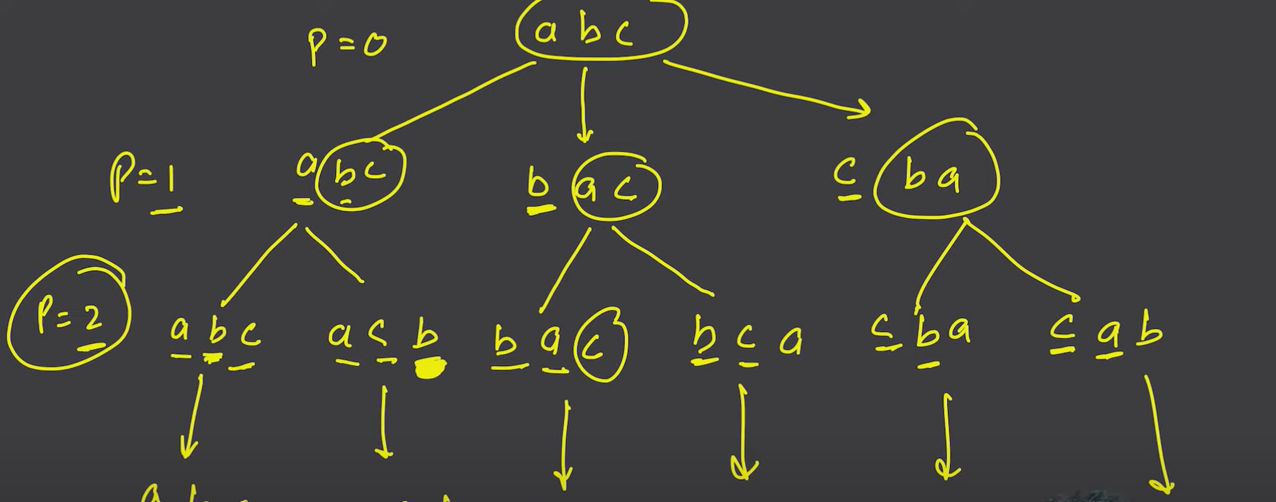 P=0 abc
P=1 abc bac cba
P=2 abc acb bac bca cba cab